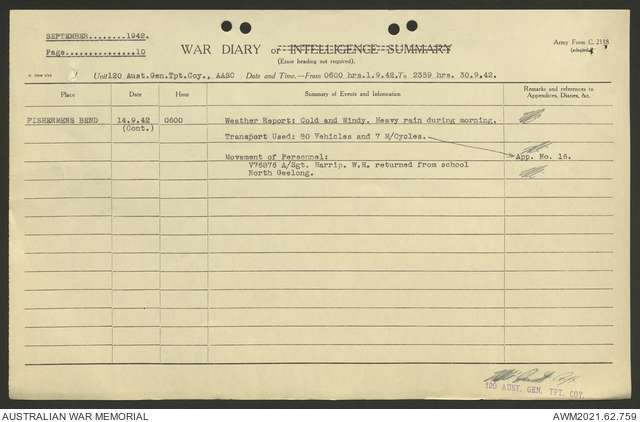 SEPTEMBER........1942.
Page................10
WAR DIARY or INTELLIGENCE SUMMARY
(Erase heading not required).
Army Form C. 2118
(adapted)
Unit 120 Aust.Gen.Tpt.Coy., AASC Date and Time.—From 0600 hrs.1.9.42.To 2359 hrs. 30.9.42.
Place Date Hour Summary of Events and Information Remarks and references to Appendices, Diaries, &c.
FISHERMENS BEND 14.9.42 0600 Weather Report: Cold and Windy. Heavy rain during morning.
(Cont.)
Transport Used: 80 Vehicles and 7 M/Cycles.
App. No. 18.
Movement of Personnel:
V76876 A/Sgt. Harrip. W.H. returned from school
North Geelong.
120 AUST. GEN. TPT. COY.
AUSTRALIAN WAR MEMORIAL AWM2021.62.759